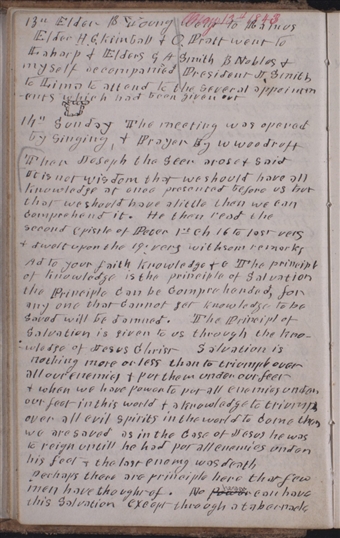 May 13th 1843
13th Elder B Young went to Ramus
Elder H. C. Kimball & O. Pratt went to
Laharp & Elders G A Smith B Nobles &
myself accompanied President H. Smith
to Lima to attend to the several appointm
ents which had been given out
14th Sunday The meeting was opened
by singing, & Prayer By W woodruff
Then Joseph the Seer arose & said
It is not wisdom that we should have all
knowledge at once presented before us but
that we should have a little then we can
Comprehend it. He then read the
Second epistle of Peter 1st Ch 16 to last vers
& dwelt upon the 19th vers with som remarks
Ad to your faith knowledge &c The principl
of knowledge is the principle of Salvation
the Principle Can be Comprehended, for
any one that Cannot get knowledge to be
Saved will be damned. The Principl of
Salvation is given to us through the kno-
wledge of Jesus Christ Salvation is
nothing more or less than to triumph over
all our enemies & put them under our feet
& when we have power to put all enemies under
our feet in this world & a knowledge to triumph
over all evil spirits in the world to Come then
we are saved as in the Case of Jesus he was
to reign untill he had put all enemies under
his feet & the last enemy was death
Perhaps there are principle here that few
men have thought of. No person Can have
this Salvation except through a tabernacle